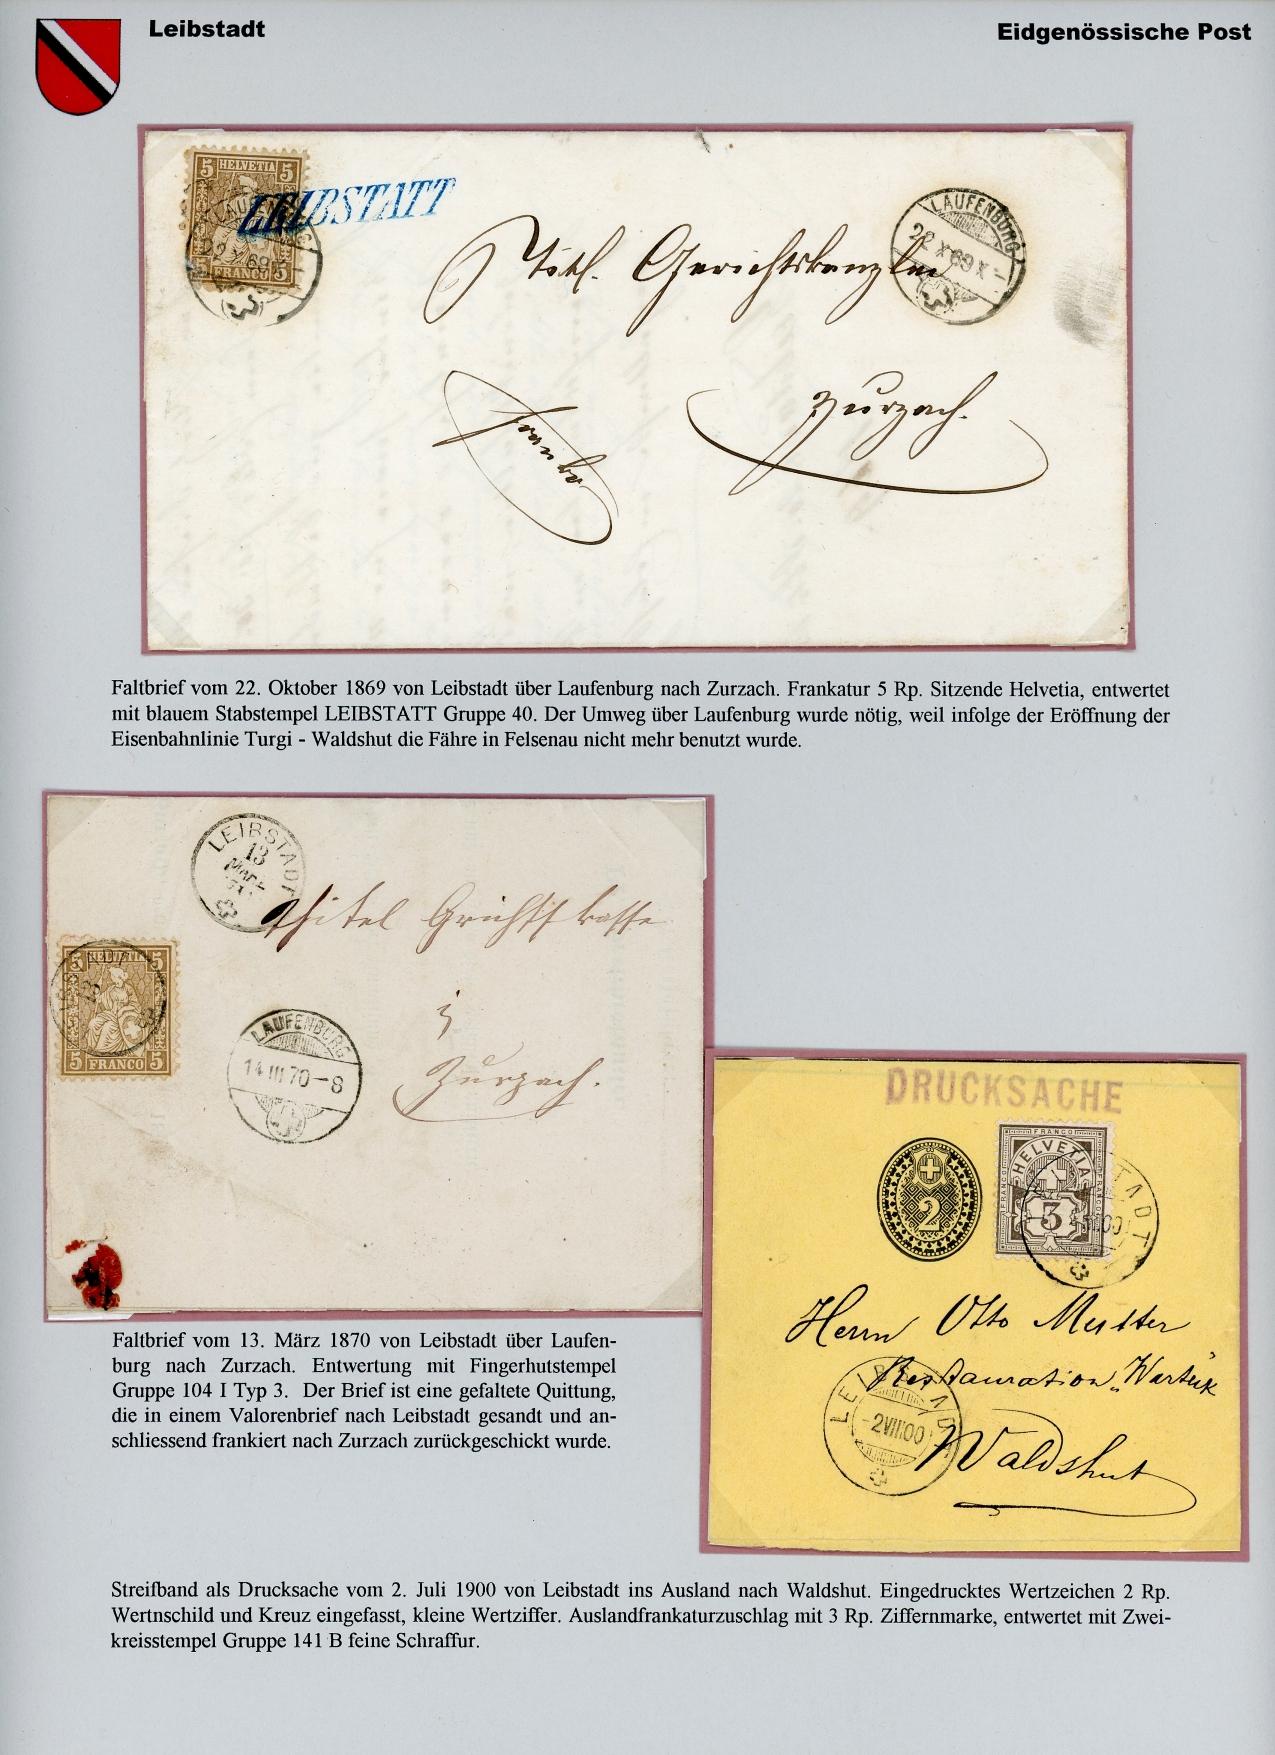 Leibstadt
Eidgenössische Post
5 HELVETIA 5
FRANCO 5
LEIBSTATT
LAUFENBURG
22 X 69 X -
Titl. Gerichtskanzlei
Zurzach.
Franko
Faltbrief vom 22. Oktober 1869 von Leibstadt über Laufenburg nach Zurzach. Frankatur 5 Rp. Sitzende Helvetia, entwertet
mit blauem Stabstempel LEIBSTATT Gruppe 40. Der Umweg über Laufenburg wurde nötig, weil infolge der Eröffnung der
Eisenbahnlinie Turgi - Waldshut die Fähre in Felsenau nicht mehr benutzt wurde.
LEIBSTADT
13
MÄRZ
Gerichtskasse
5 HELVETIA 5
5 FRANCO 5
LAUFENBURG
14 III 70-8
Zurzach.
DRUCKSACHE
2
FRANCO
HELVETIA
3
Herrn Otto Mutter
Restauration „Warteck
LEIBSTADT
-2 VII 00
Waldshut
Faltbrief vom 13. März 1870 von Leibstadt über Laufen-
burg nach Zurzach. Entwertung mit Fingerhutstempel
Gruppe 104 I Typ 3. Der Brief ist eine gefaltete Quittung,
die in einem Valorenbrief nach Leibstadt gesandt und an-
schliessend frankiert nach Zurzach zurückgeschickt wurde.
Streifband als Drucksache vom 2. Juli 1900 von Leibstadt ins Ausland nach Waldshut. Eingedrucktes Wertzeichen 2 Rp.
Wertnschild und Kreuz eingefasst, kleine Wertziffer. Auslandfrankaturzuschlag mit 3 Rp. Ziffernmarke, entwertet mit Zwei-
kreisstempel Gruppe 141 B feine Schraffur.